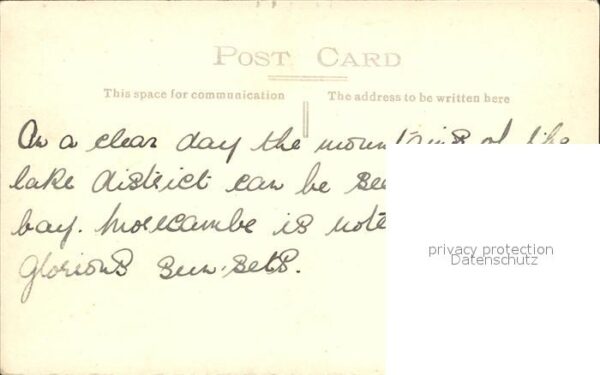 POST CARD
This space for communication
The address to be written here
On a clear day the mountains of the
lake district can be
bay. Morecambe is
glorious sun-sets.
privacy protection
Datenschutz